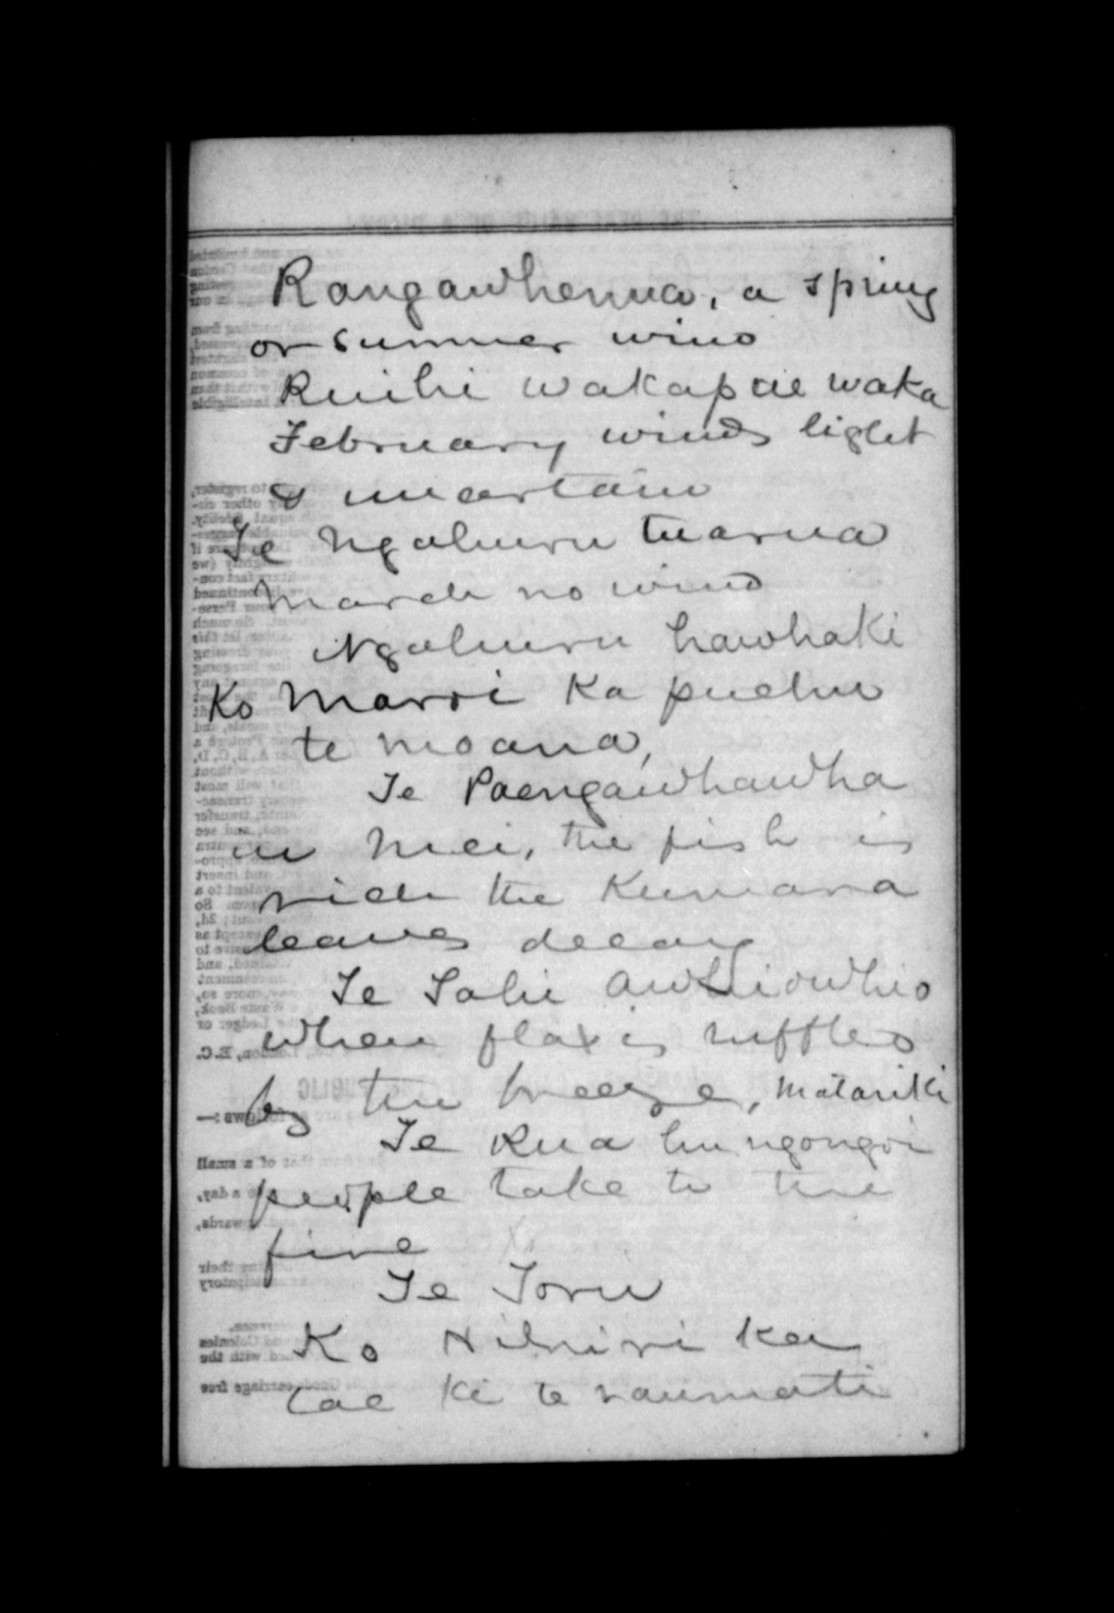 Rangawhenua, a spring
or summer wind
Ruihi wakapae waka
February winds light
& uncertain
Te Ngahuru tuarua
March no wind
Ngahuru hawhaki
Ko Marri Ka puehu
te moana,
Te Paengawhawha
in Mei, the fish is
rich the Kumara
leaves decay
Te Tahi awhiowhio
when flax is ruffled
by the breeze, Matariki
Te Rua hu ngongoi
people take to the
fire
Te Toru
Ko Hihiri ka
tae ki te raumati